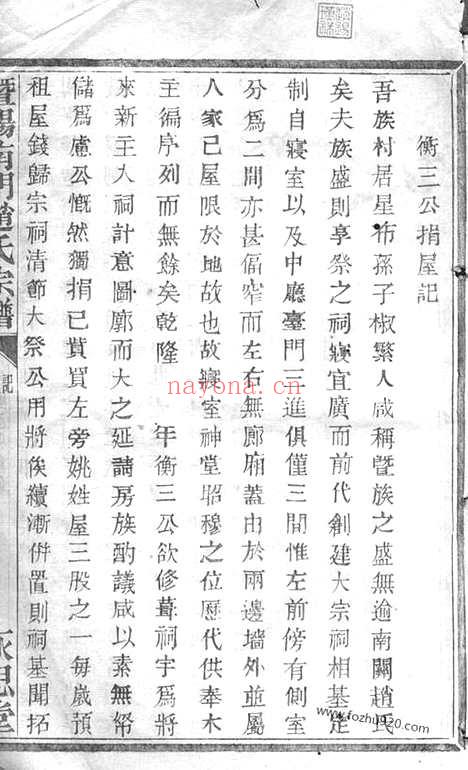 衡三公捐屋記
吾族村居星布孫子椒繁人咸稱暨族之盛無逾南關趙氏
矣夫族盛則享祭之祠寢宜廣而前代創建大宗祠相基定
制自寢室以及中廳臺門三進俱僅三間惟左前傍有側室
分爲二間亦甚偪窄而左右無廊廂蓋由於兩邊墻外並屬
人家己屋限於地故也故寢室神堂昭穆之位歷代供奉木
主編序列而無餘矣乾隆　年衡三公欲修葺祠宇爲將
來新主入祠計意圖廓而大之延請房族酌議咸以素無帑
儲爲慮公慨然獨捐已貲買左旁姚姓屋三股之一每歲預
祖屋錢歸宗祠清節大祭公用將俟續漸併置則祠基開拓
暨陽南門趙氏宗譜
記
永思堂
nayona.cn
www.fozhu920.com